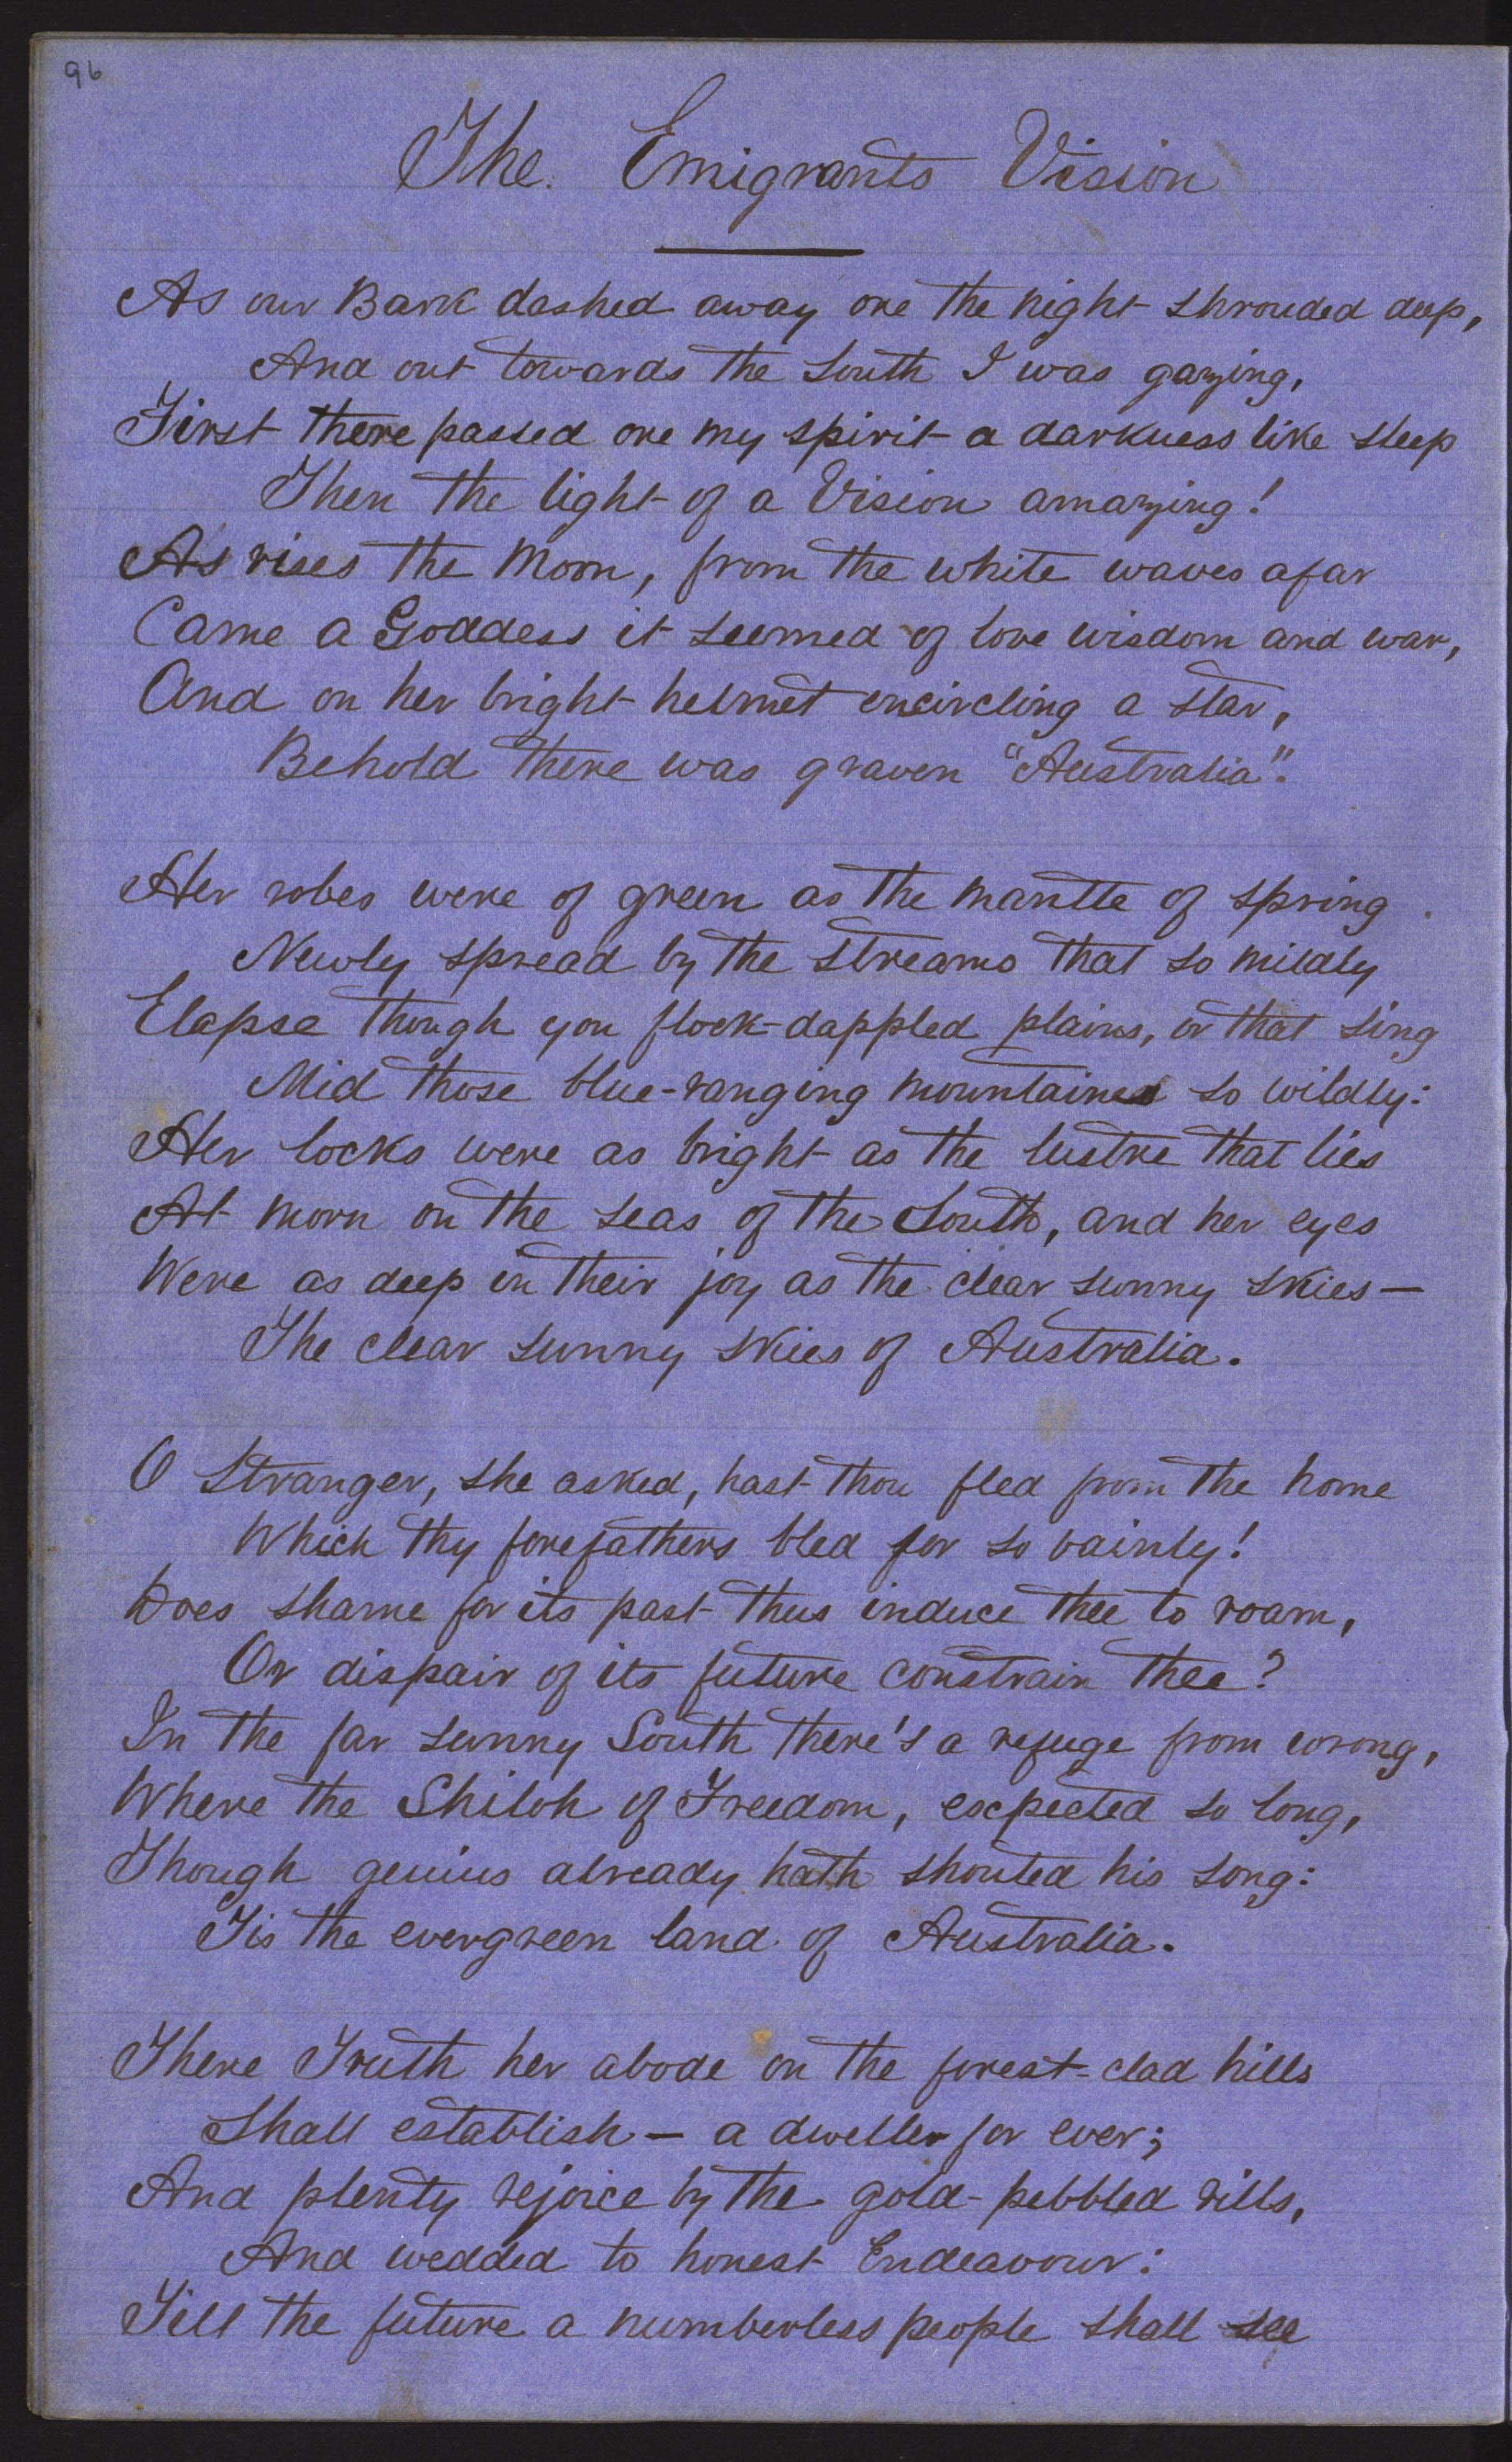 96
The Emigrants Vision
As our Bark dashed away ore the night shrouded deep,
And out towards the South I was gazing,
First there passed ore my spirit a darkness like sleep
Then the light of a Vision amazing!
As rises the Moon, from the white waves afar
Came a Goddess it seemed of love wisdom and war,
And on her bright helmet encircling a star,
Behold there was graven "Australia".
Her robes were of green as the mantle of spring
Newly spread by the streams that so mildly
Elapse though yon flock-dappled plains, or that sing
Mid those blue-ranging mountains so wildly:
Her locks were as bright as the lustre that lies
At morn on the seas of the South, and her eyes
Were as deep in their joy as the clear sunny skies —
The clear sunny skies of Australia.
O Stranger, she asked, hast thou fled from the home
Which thy forefathers bled for so vainly!
Does shame for its past thus induce thee to roam,
Or dispair of its future constrain thee?
In the far sunny South there's a refuge from wrong,
Where the Shiloh of Freedom, expected so long,
Though genius already hath shouted his song:
Tis the evergreen land of Australia.
There Truth her abode on the forest-clad hills
Shall establish — a dweller for ever;
And plenty rejoice by the gold-pebbled rills,
And wedded to honest Endeavour:
Till the future a numberless people shall see